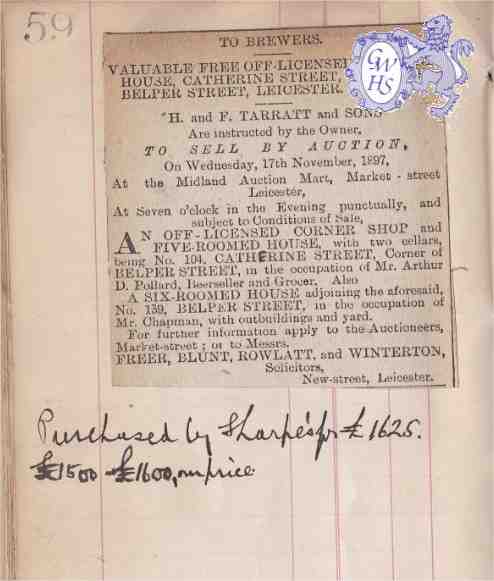 59
TO BREWERS.
VALUABLE FREE OFF-LICENSED
HOUSE, CATHERINE STREET,
BELPER STREET, LEICESTER.
H. and F. TARRATT and SONS
Are instructed by the Owner,
TO SELL BY AUCTION,
On Wednesday, 17th November, 1897,
At the Midland Auction Mart, Market-street
Leicester,
At Seven o'clock in the Evening punctually, and
subject to Conditions of Sale,
AN OFF-LICENSED CORNER SHOP and
FIVE-ROOMED HOUSE, with two cellars,
being No. 104, CATHERINE STREET, Corner of
BELPER STREET, in the occupation of Mr. Arthur
D. Pollard, Beerseller and Grocer. Also
A SIX-ROOMED HOUSE adjoining the aforesaid,
No. 159, BELPER STREET, in the occupation of
Mr. Chapman, with outbuildings and yard.
For further information apply to the Auctioneers,
Market-street; or to Messrs.
FREER, BLUNT, ROWLATT, and WINTERTON,
Solicitors,
New-street, Leicester.
Purchased by Sharpe's for £1625.
£1500 - £1600, our price
GWHS